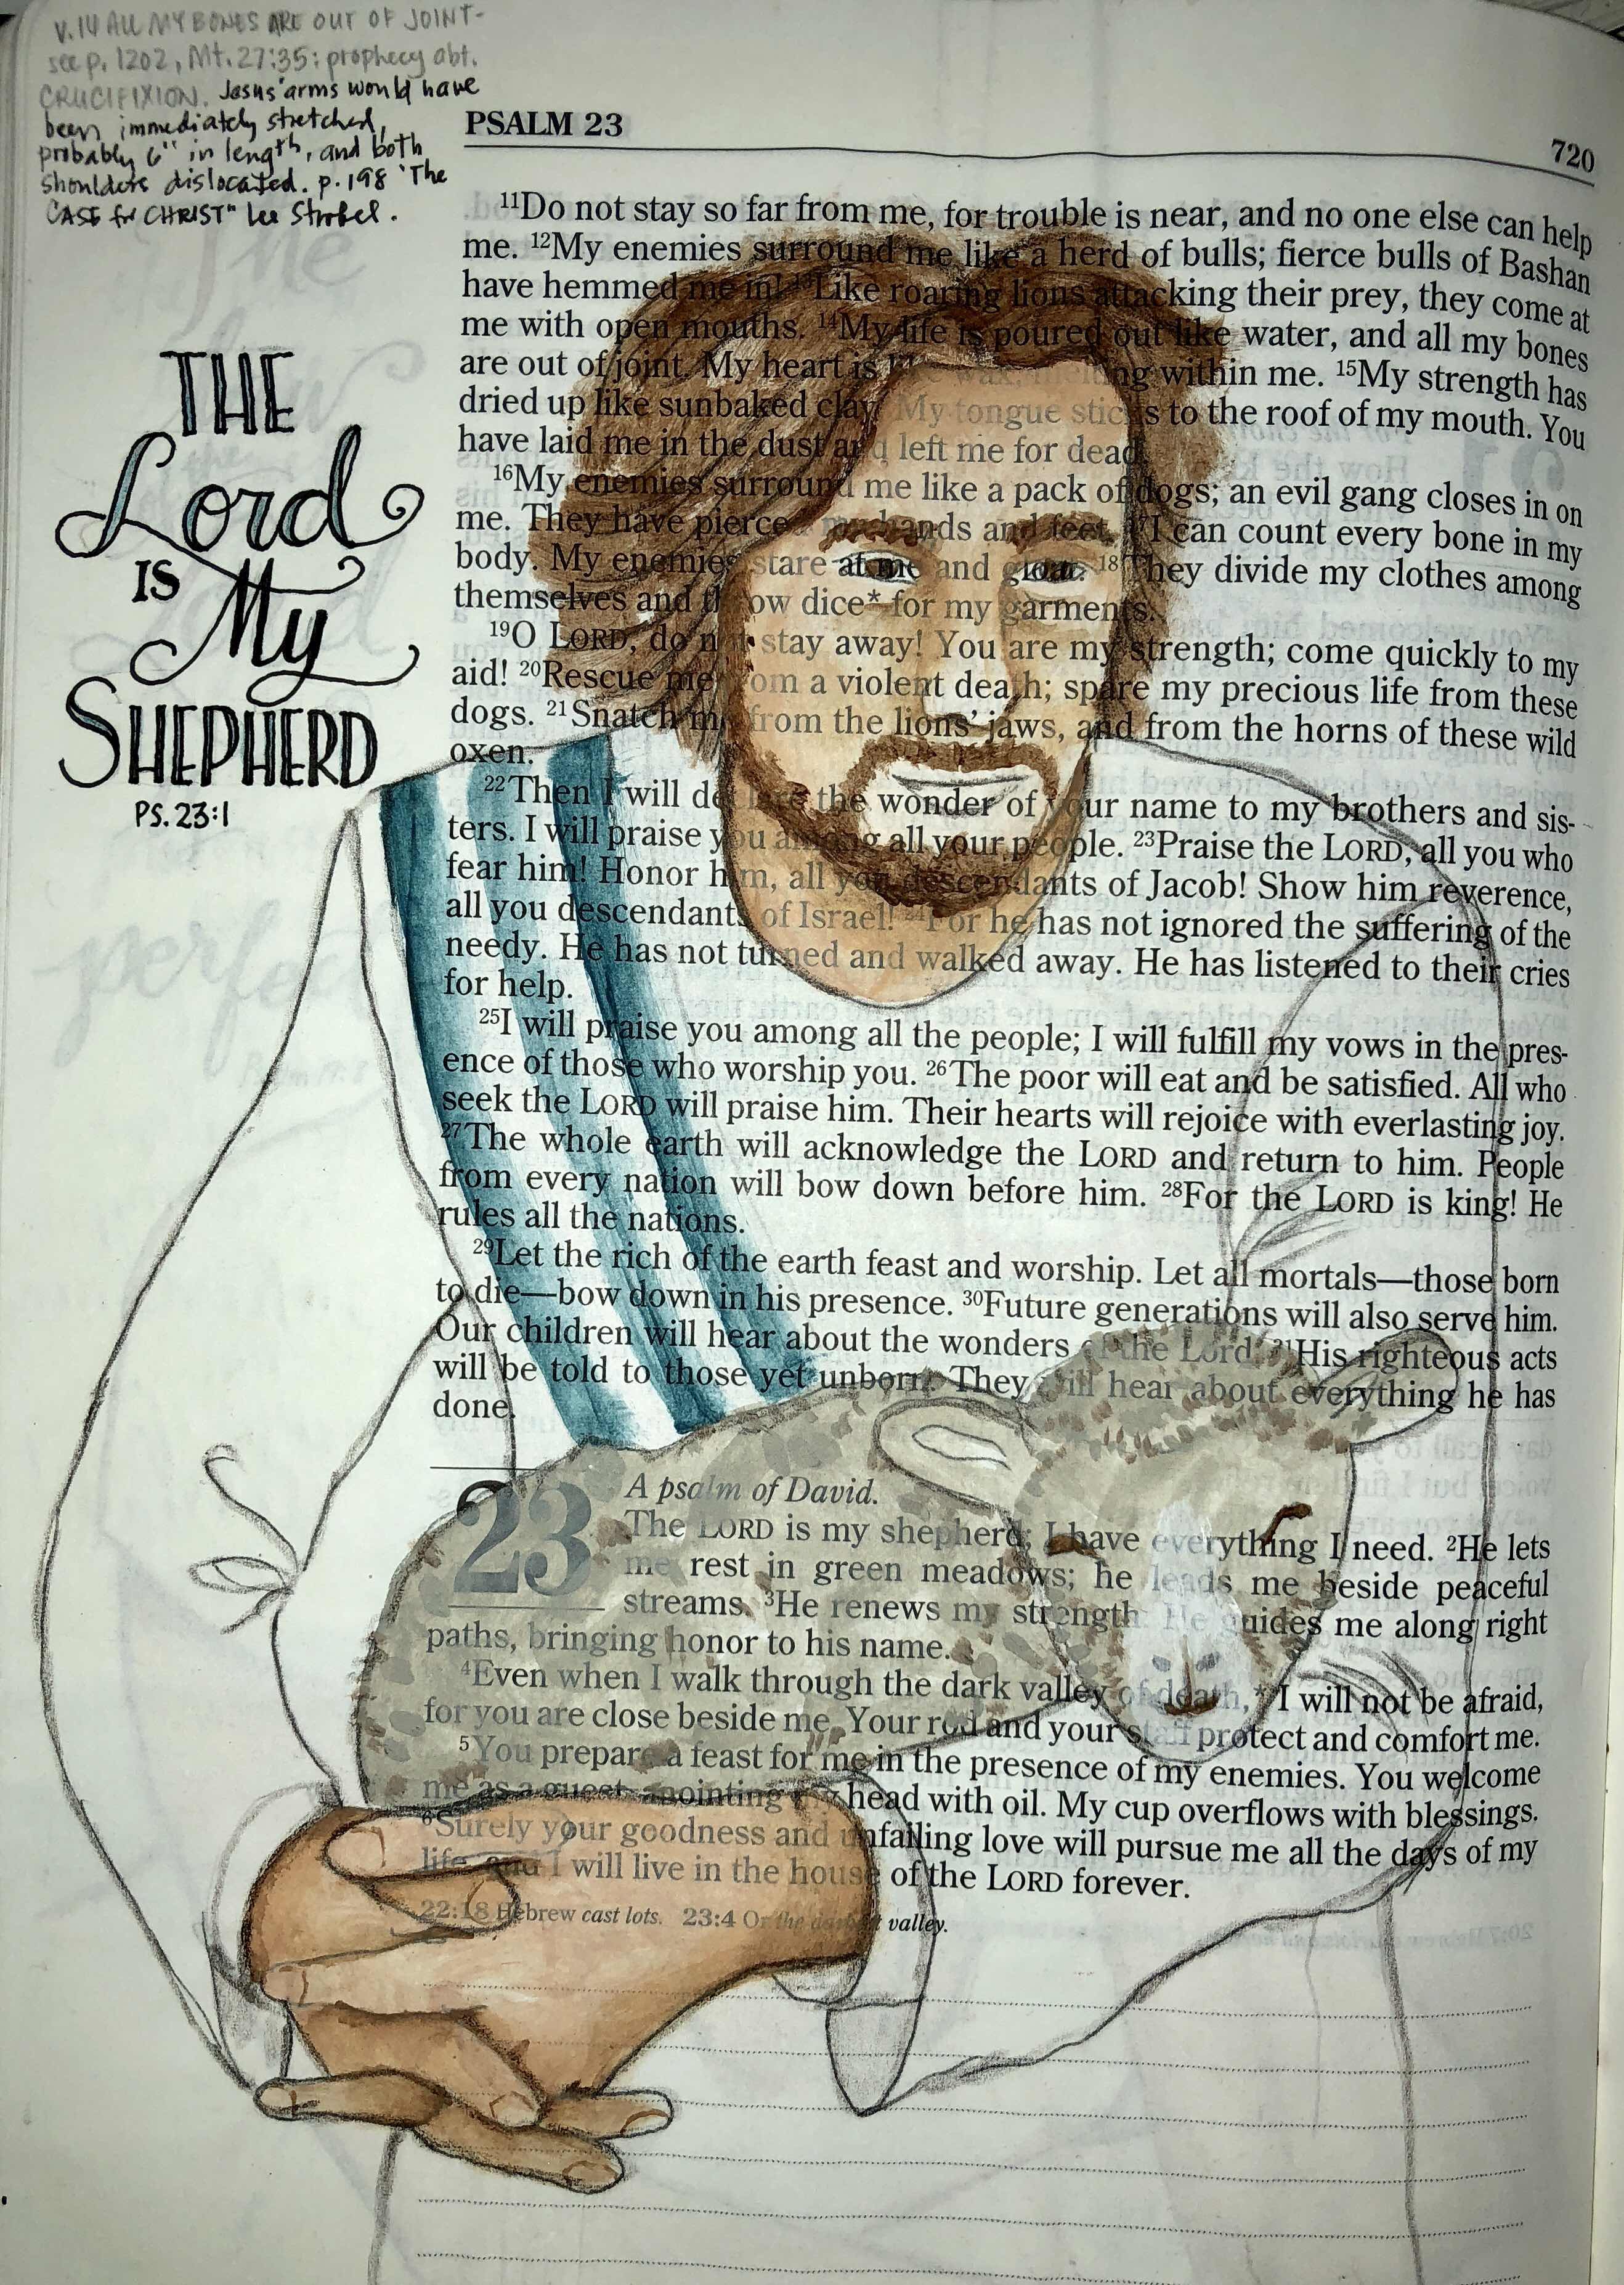 V.14 ALL MY BONES ARE OUT OF JOINT-
see p. 1202, Mt. 27:35: prophecy abt.
CRUCIFIXION. Jesus' arms would have
been immediately stretched,
probably 6" in length, and both
shoulders dislocated. p. 198 'The
CASE for CHRIST" Lee Strobel.
PSALM 23
720
THE
Lord
IS
My
SHEPHERD
PS. 23:1
11Do not stay so far from me, for trouble is near, and no one else can help
me. 12My enemies surround me like a herd of bulls; fierce bulls of Bashan
have hemmed me in! 13Like roaring lions attacking their prey, they come at
me with open mouths. 14My life is poured out like water, and all my bones
are out of joint. My heart is like wax, melting within me. 15My strength has
dried up like sunbaked clay. My tongue sticks to the roof of my mouth. You
have laid me in the dust and left me for dead.
16My enemies surround me like a pack of dogs; an evil gang closes in on
me. They have pierced my hands and feet. 17I can count every bone in my
body. My enemies stare at me and gloat. 18They divide my clothes among
themselves and throw dice* for my garments.
19O LORD, do not stay away! You are my strength; come quickly to my
aid! 20Rescue me from a violent death; spare my precious life from these
dogs. 21Snatch me from the lions' jaws, and from the horns of these wild
oxen.
22Then I will declare the wonder of your name to my brothers and sis-
ters. I will praise you among all your people. 23Praise the LORD, all you who
fear him! Honor him, all you descendants of Jacob! Show him reverence,
all you descendants of Israel! 24For he has not ignored the suffering of the
needy. He has not turned and walked away. He has listened to their cries
for help.
25I will praise you among all the people; I will fulfill my vows in the pres-
ence of those who worship you. 26The poor will eat and be satisfied. All who
seek the LORD will praise him. Their hearts will rejoice with everlasting joy.
27The whole earth will acknowledge the LORD and return to him. People
from every nation will bow down before him. 28For the LORD is king! He
rules all the nations.
29Let the rich of the earth feast and worship. Let all mortals—those born
to die—bow down in his presence. 30Future generations will also serve him.
Our children will hear about the wonders of the Lord. 31His righteous acts
will be told to those yet unborn. They will hear about everything he has
done.
23
A psalm of David.
The LORD is my shepherd; I have everything I need. 2He lets
me rest in green meadows; he leads me beside peaceful
streams. 3He renews my strength. He guides me along right
paths, bringing honor to his name.
4Even when I walk through the dark valley of death,* I will not be afraid,
for you are close beside me. Your rod and your staff protect and comfort me.
5You prepare a feast for me in the presence of my enemies. You welcome
me as a guest, anointing my head with oil. My cup overflows with blessings.
6Surely your goodness and unfailing love will pursue me all the days of my
life, and I will live in the house of the LORD forever.
22:18 Hebrew cast lots. 23:4 Or the darkest valley.